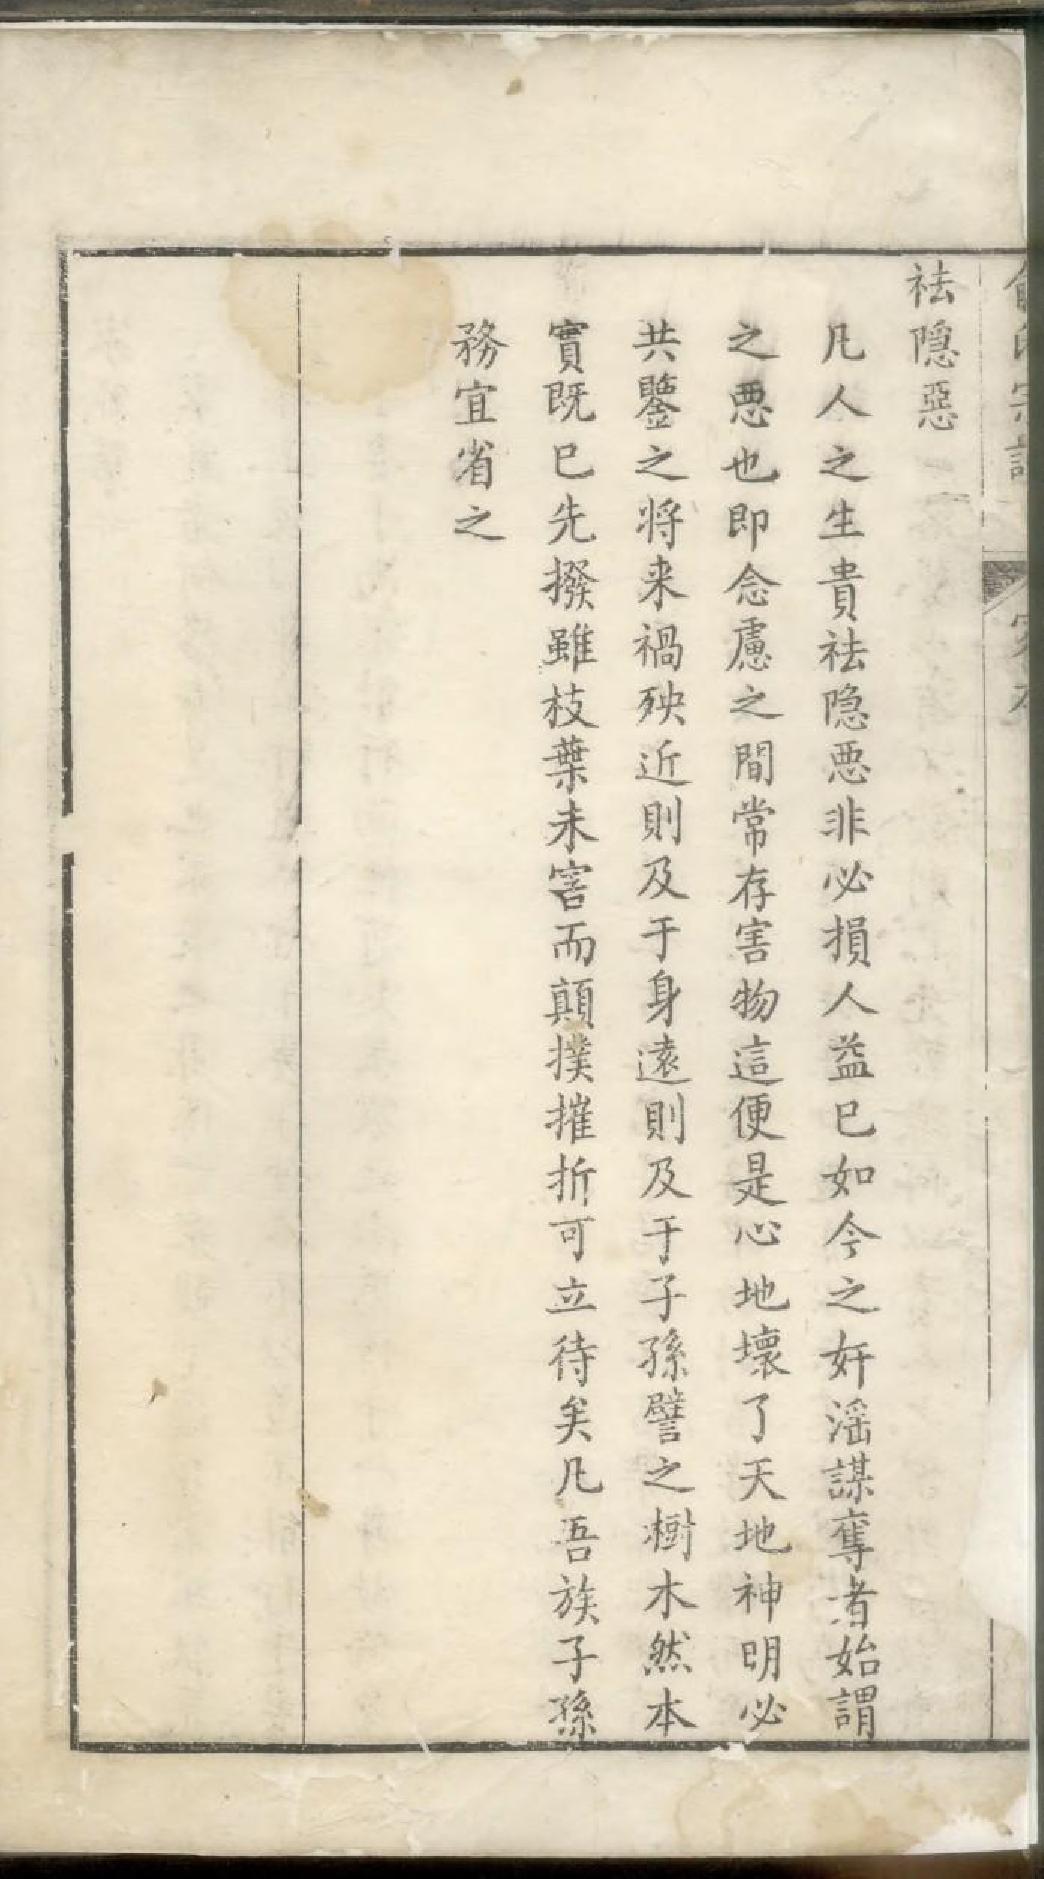 祛隠惡
凡人之生貴祛隠悪非必損人益已如今之奸滛謀奪者始謂
之悪也即念慮之間常存害物這便是心地壞了天地神明必
共鑒之将来禍殃近則及于身遠則及于子孫譬之樹木然本
實既已先撥雖枝葉未害而顛撲摧折可立待矣凡吾族子孫
務宜省之